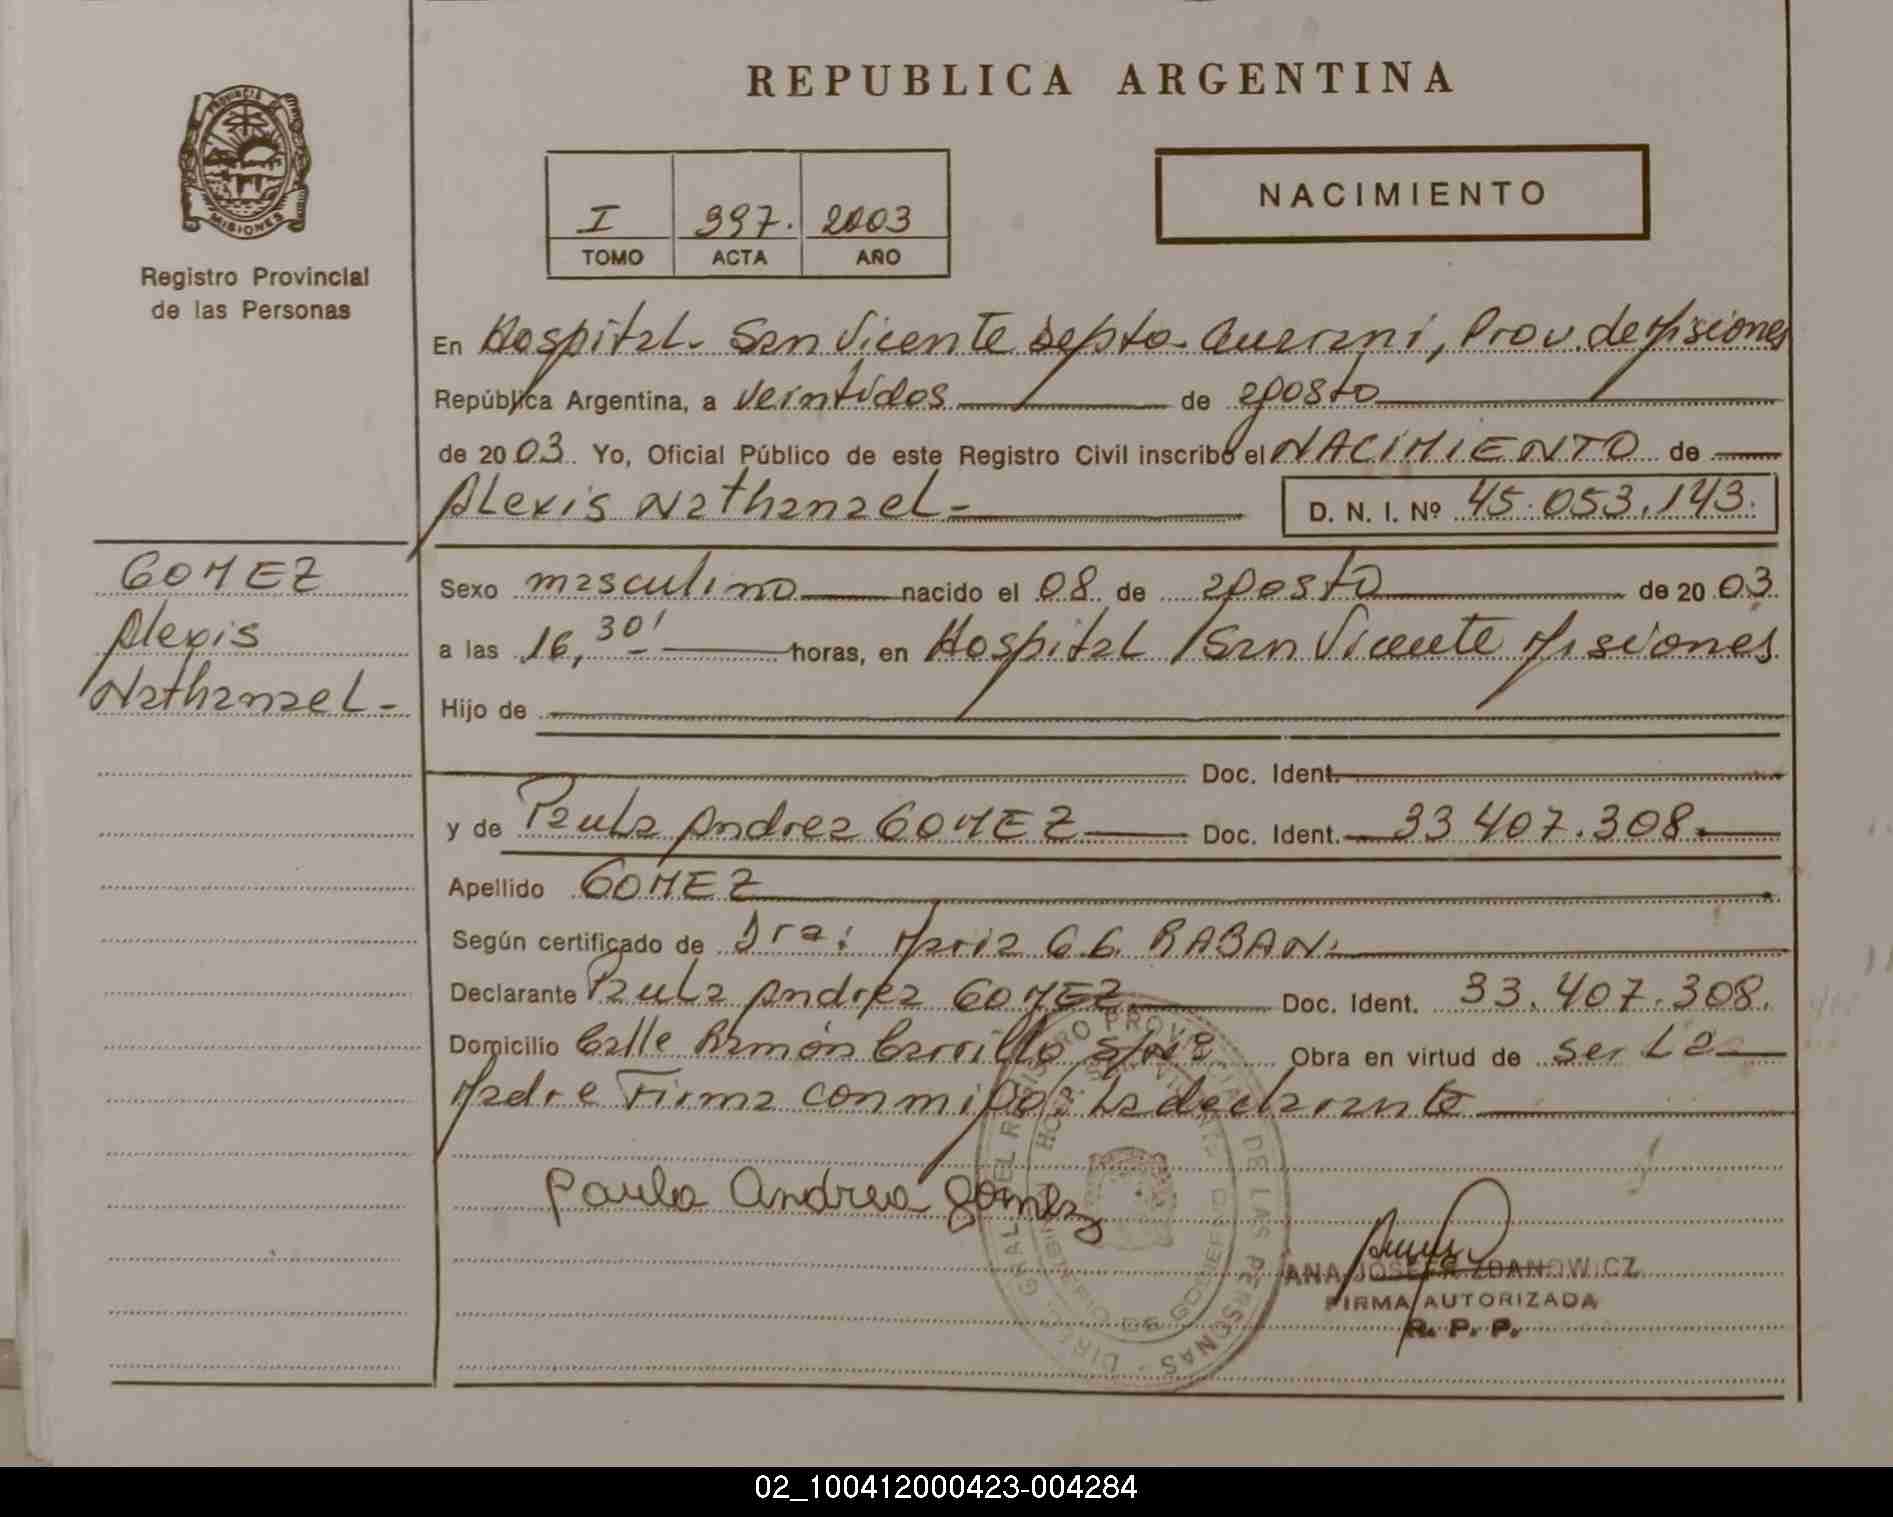 REPUBLICA ARGENTINA
PROVINCIA DE
MISIONES
Registro Provincial
de las Personas
NACIMIENTO
I 397. 2003
TOMO ACTA AÑO
En Hospital - San Vicente Depto. Guarani, Prov. de Misiones
República Argentina, a veintidos de agosto
de 2003. Yo, Oficial Público de este Registro Civil inscribo el NACIMIENTO de
Alexis Nathanael - D. N. I. Nº 45.053.143.
GOMEZ
Alexis
Nathanael -
Sexo masculino nacido el 08 de agosto de 2003.
a las 16,30' horas, en Hospital San Vicente Misiones
Hijo de
Doc. Ident.
y de Paula Andrea GOMEZ Doc. Ident. 33.407.308.
Apellido GOMEZ
Según certificado de Dra: Maria G.G. RABAN.
Declarante Paula Andrea GOMEZ Doc. Ident. 33.407.308.
Domicilio Calle Ramón Carrillo S/Nº Obra en virtud de ser La
Madre Firma conmigo: La declarante
Paula Andrea Gomez
DIREC. GRAL. DEL REGISTRO PROVINCIAL DE LAS PERSONAS
MINISTERIO DE GOBIERNO
ANA JOSEFA ZDANOWICZ
FIRMA AUTORIZADA
R. P. P.
02_100412000423-004284